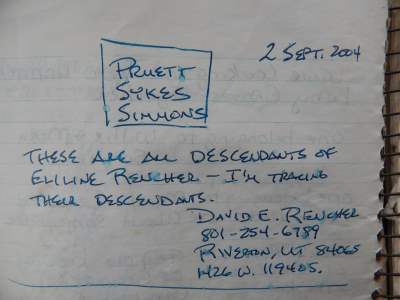 2 SEPT. 2004
PRUETT
SYKES
SIMMONS
THESE ARE ALL DESCENDANTS OF
RENCHER — I'M TRACING
THEIR DESCENDANTS.
DAVID E. RENCHER
801-254-6789
RIVERTON, UT 84065
1426 W. 11940 S.